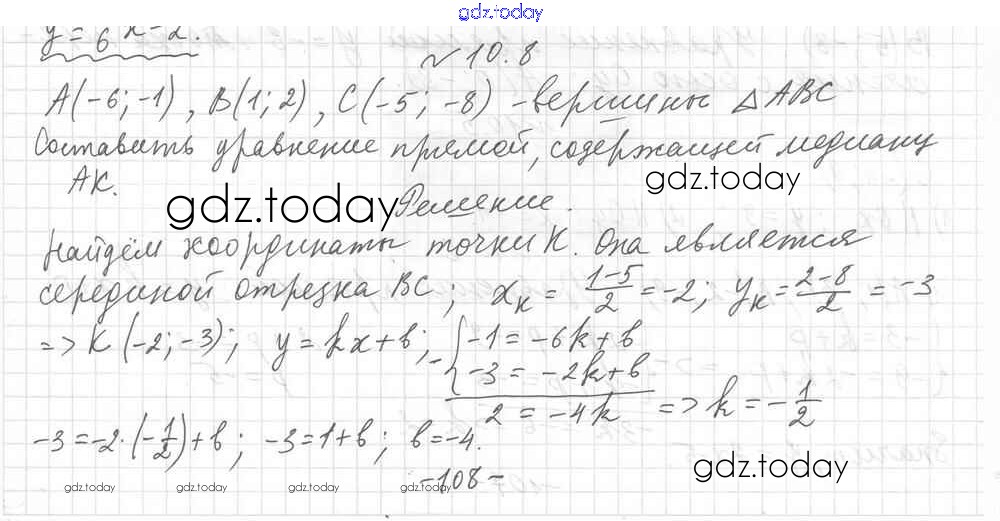 gdz.today
y = 6x - 2.
№ 10.8
A(-6; -1), B(1; 2), C(-5; -8) - вершины △ABC
Составить уравнение прямой, содержащей медиану
AK.
gdz.today
gdz.today
Решение.
Найдём координаты точки K. Она является
серединой отрезка BC; x_K = (1-5)/2 = -2; y_K = (2-8)/2 = -3
=> K(-2; -3); y = kx+b; - { -1 = -6k+b
-3 = -2k+b
2 = -4k => k = -1/2
-3 = -2·(-1/2)+b; -3 = 1+b; b = -4.
gdz.today
-108-
gdz.today gdz.today gdz.today gdz.today